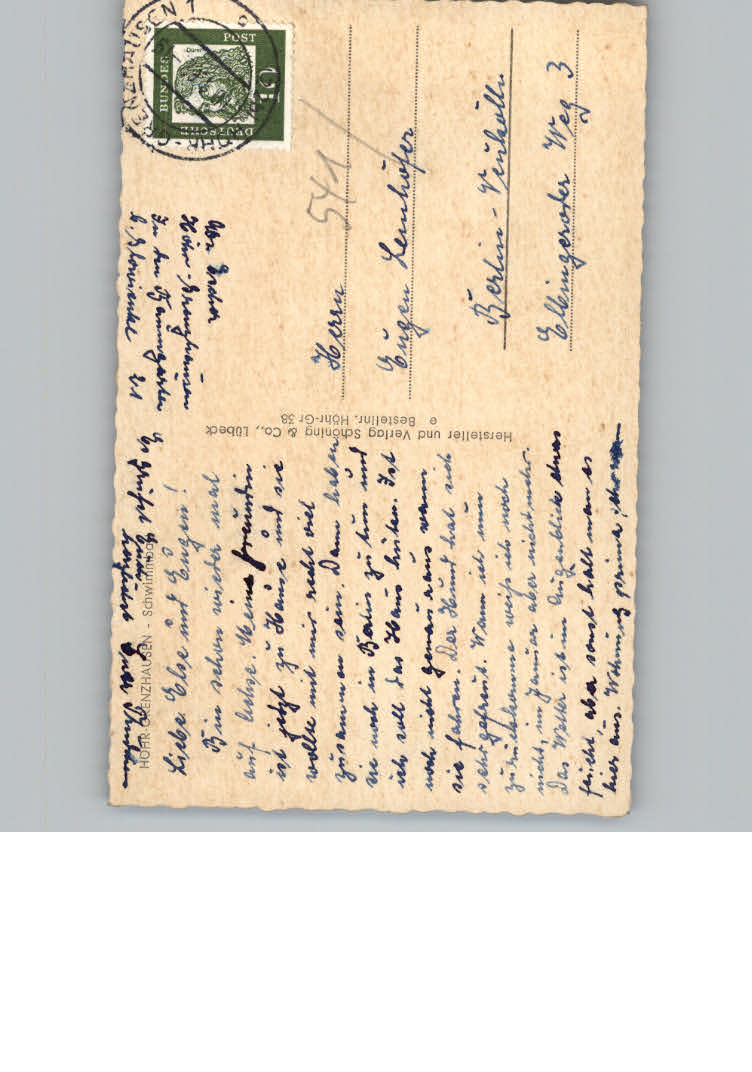 HÖHR-GRENZHAUSEN - Schwimmbad
Liebe Else und Eugen!
Bin schon wieder mal
auf Achse. Meine Freundin
ist jetzt zu Hause und sie
wollte mit mir recht viel
zusammen sein. Dann haben
sie noch in Berlin zu tun und
ich soll das Haus hüten. Ist
noch nicht genau raus wann
sie fahren. Der Hund hat sich
sehr gefreut. Wann ich nun
zurückkomme weiß ich noch
nicht, im Januar aber nicht mehr.
Das Wetter ist im Augenblick etwas
feucht aber sonst hält man es
hier aus. Wohnung prima,
Es grüßt Euch
herzlichst Eure
Hersteller und Verlag Schöning & Co., Lübeck
e Bestellnr. Höhr-Gr 38
Höhr-Grenzhausen
In den Baumgärten 21
HÖHR-GRENZHAUSEN 1
DEUTSCHE BUNDESPOST
Dürer
10
541/
Herrn
Eugen Lemhöfer
Berlin-Neukölln
Elbingeroder Weg 3